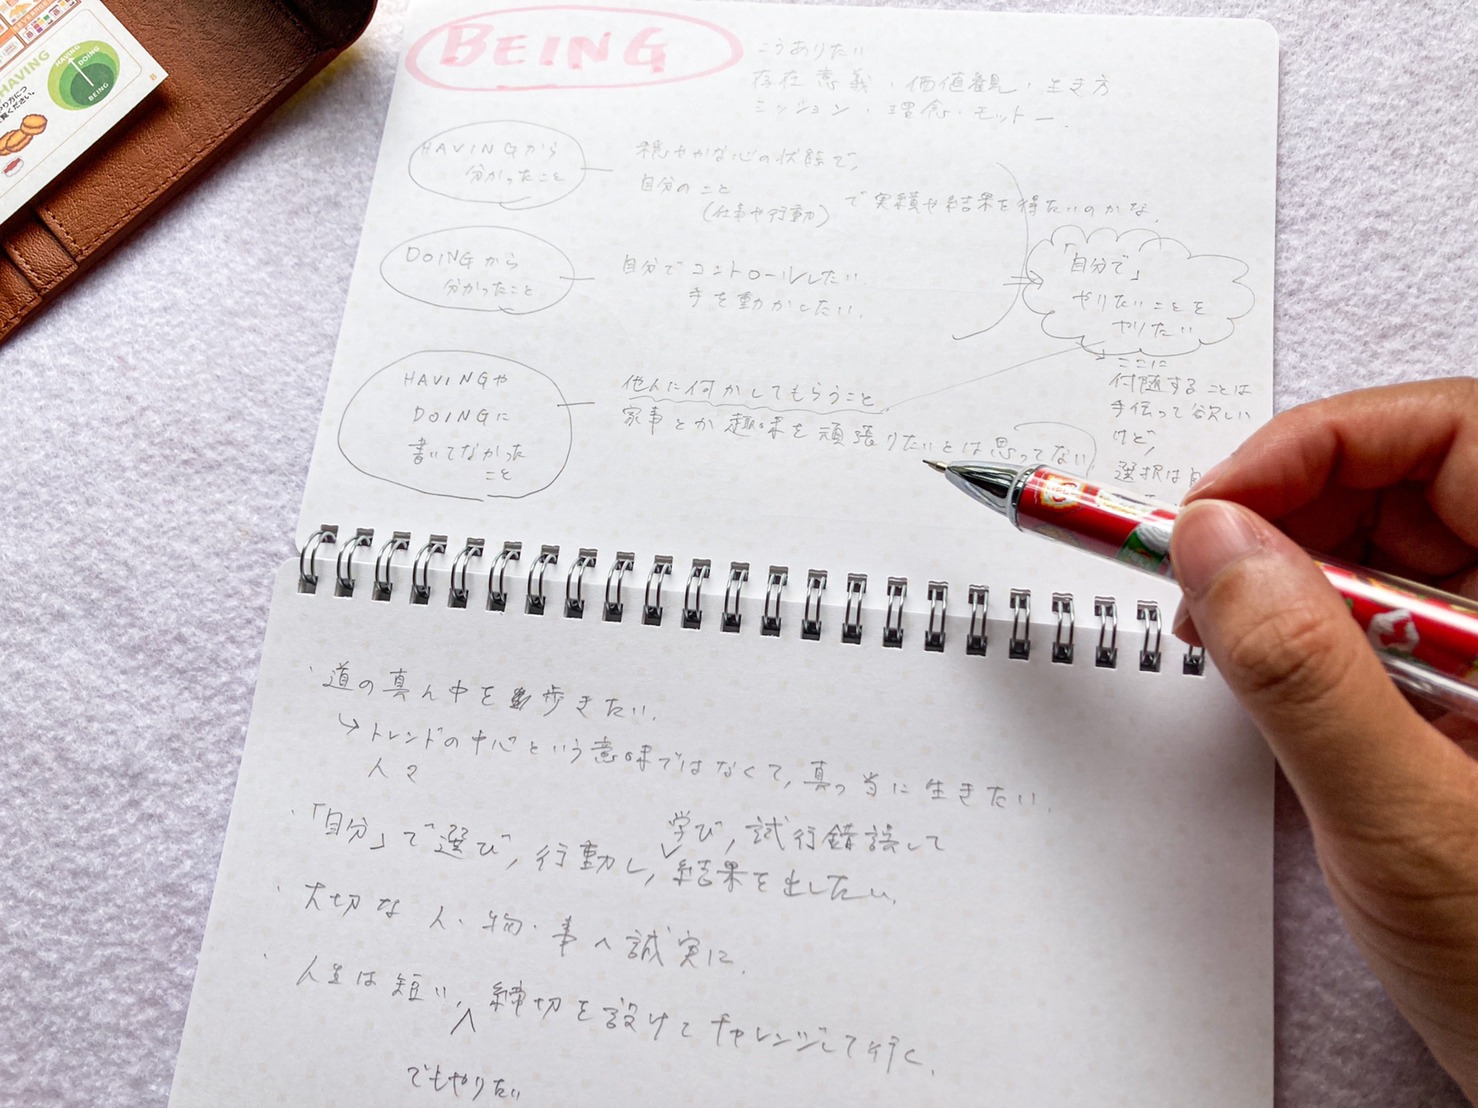 HAVING
HAVING
DOING
BEING
BEING
こうありたい
存在意義・価値観・生き方
ミッション・理念・モットー.
HAVINGから
分かったこと
穏やかな心の状態で,
自分のこと
(仕事や行動)
で実績や結果を得たいのかな.
DOINGから
分かったこと
自分でコントロールしたい.
手を動かしたい.
「自分で」
やりたいことを
やりたい
ここに
付随することは
手伝って欲しい
けど,
選択は自
HAVINGや
DOINGに
書いてなかった
こと
他人に何かしてもらうこと
家事とか趣味を頑張りたいとは思ってない.
・道の真ん中を歩きたい.
↳トレンドの中心という意味ではなくて,真っ当に生きたい.
人々
・「自分」で選び,行動し,学び,試行錯誤して
結果を出したい.
・大切な人・物・事へ誠実に.
・人生は短い,締切を設けてチャレンジして行く.
でもやりたい